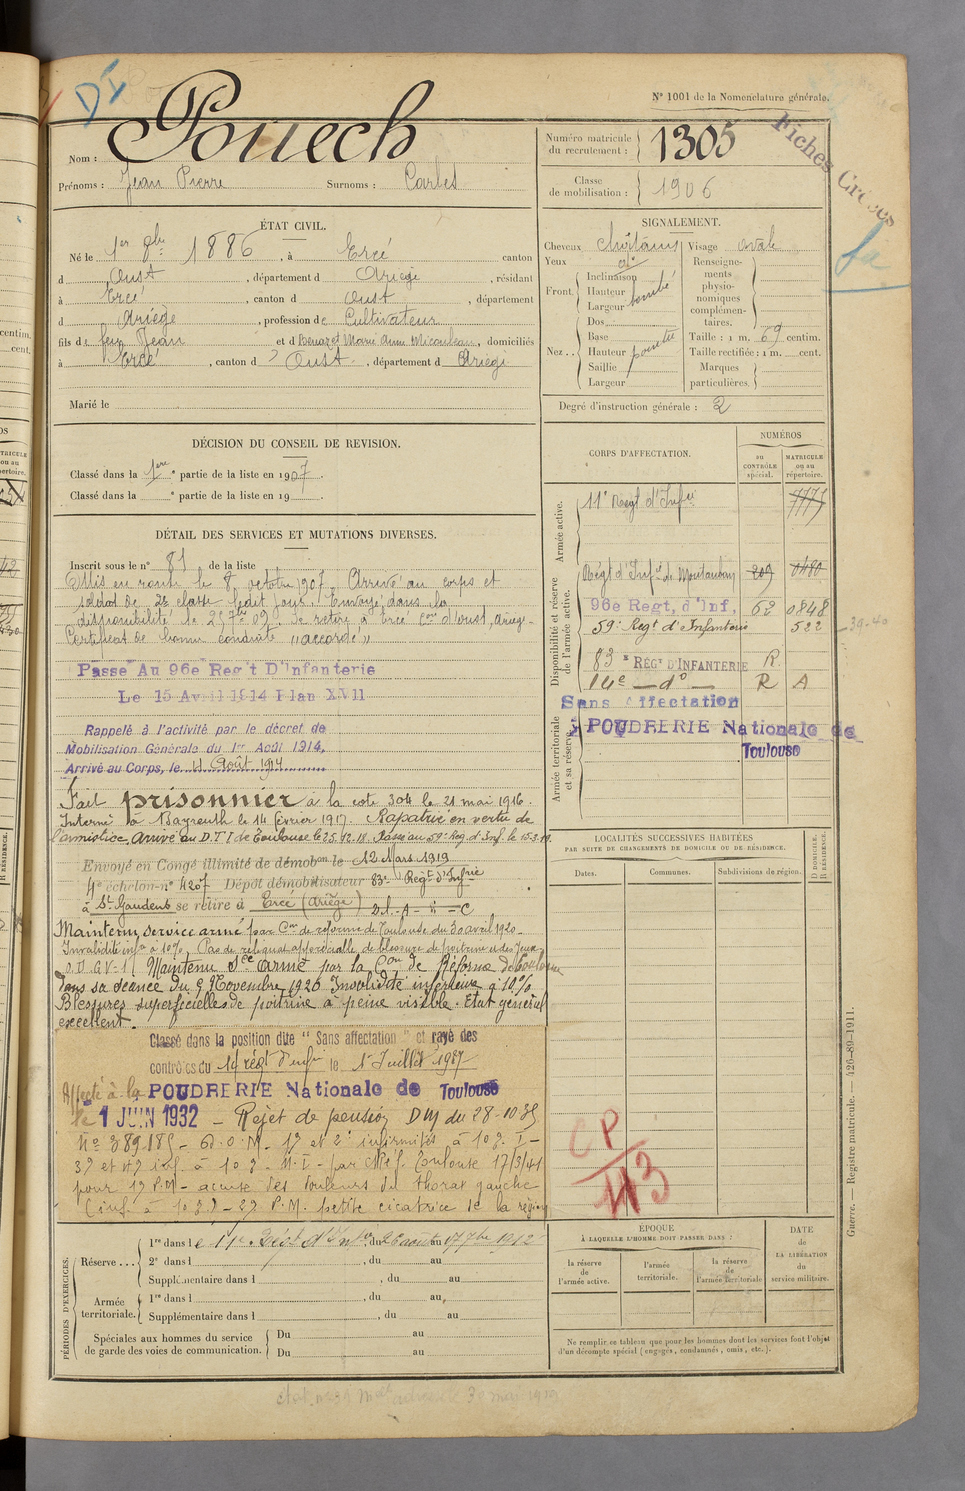 N° 1001 de la Nomenclature générale.
Fiches Créées
Nom : Pouech
Prénoms : Jean Pierre Surnoms : Carlet
Numéro matricule du recrutement : 1305
Classe de mobilisation : 1906
ÉTAT CIVIL.
Né le 1er 8bre 1886, à Ercé canton
d Oust, département d Ariège, résidant
à Ercé, canton d Oust, département
d Ariège, profession de Cultivateur
fils de feu Jean et d Benazet Marie Anne Micouleau, domiciliés
à Ercé, canton d Oust, département d Ariège
Marié le
SIGNALEMENT.
Cheveux châtains Visage ovale
Yeux do
Front. Inclinaison
Hauteur bombé
Largeur
Nez . . Dos
Base
Hauteur pointu
Saillie
Largeur
Renseignements physionomiques complémentaires.
Taille : 1 m. 69 centim.
Taille rectifiée : 1 m. cent.
Marques particulières.
Degré d'instruction générale : 2
DÉCISION DU CONSEIL DE REVISION.
Classé dans la 1ère partie de la liste en 1907.
Classé dans la e partie de la liste en 19
CORPS D'AFFECTATION.
NUMÉROS
au CONTRÔLE spécial.
MATRICULE ou au répertoire.
Armée active.
11e Régt d'Infie 7775
Disponibilité et réserve de l'armée active.
Régt d'Infie de Montauban 209 0480
96e Regt, d'Inf, 62 0848
59e Regt d'Infanterie 522
39-40
83e RÉGt D'INFANTERIE R
14e — do — R A
Armée territoriale et sa réserve.
Sans Affectation
à POUDRERIE Nationale de
Toulouse
DÉTAIL DES SERVICES ET MUTATIONS DIVERSES.
Inscrit sous le n° 81 de la liste
Mis en route le 8 octobre 1907. Arrivé au corps et
soldat de 2e classe ledit jour. Envoyé dans la
disponibilité le 25 7bre 09. Se retire à Ercé Con d'Oust, Ariège.
Certificat de bonne conduite "accordé"
Passe Au 96e Reg't D'Infanterie
Le 15 Avril 1914 Plan XVII
Rappelé à l'activité par le décret de
Mobilisation Générale du 1er Août 1914,
Arrivé au Corps, le 4 Août 1914
Fait prisonnier à la cote 304 le 21 mai 1916.
Interné à Bayreuth le 14 février 1917. Rapatrié en vertu de
l'armistice arrivé au D.T.I de Toulouse le 25.12.18. Passé au 59e Reg. d'Inf. le 15-3-19.
Envoyé en Congé illimité de démobon le 12 Mars 1919
4e échelon n° 4207 Dépôt démobilisateur 83e Regt d'Infrie
à St Gaudens se retire à Ercé (Ariège) D.l.-A-"-C
Maintenu service armé par Con de réforme de Toulouse du 30 avril 1920-
Invalidité infre à 10%. Pas de reliquat appréciable de blessure de poitrine et des yeux
Maintenu Sce armé par la Con de Réforme de Toulouse
dans sa séance du 9 Novembre 1926 Invalidité inférieure à 10%
Blessures superficielles de poitrine à peine visible. Etat général
excellent.
Classé dans la position dite "Sans affectation" et rayé des
contrôles du 14 régt d'infie le 1er Juillet 1927
Affecté à la POUDRERIE Nationale de Toulouse
le 1 JUIN 1932 - Rejet de pension DM du 28-10-35
No 389.185 - 60.0.M - 1o et 2o infirmités à 10%. I -
3o et 4o inf. à 10% - M.I - par C Réf. Toulouse 17/3/41
pour 1o P.M - accuse des douleurs du thorax gauche
(inf. à 10%) - 2o P.M. petite cicatrice de la région
LOCALITÉS SUCCESSIVES HABITÉES
PAR SUITE DE CHANGEMENTS DE DOMICILE OU DE RÉSIDENCE.
Dates. Communes. Subdivisions de région. D DOMICILE. R RÉSIDENCE.
CP
413
PÉRIODES D'EXERCICES.
Réserve . . . 1re dans le 11e Régt d'Infie, du 26 août au 17 7bre 1912
2e dans l , du au
Supplémentaire dans l , du au
Armée territoriale. 1re dans l , du au
Supplémentaire dans l , du au
Spéciales aux hommes du service de garde des voies de communication. Du au
Du au
ÉPOQUE
À LAQUELLE L'HOMME DOIT PASSER DANS :
la réserve de l'armée active.
l'armée territoriale.
la réserve de l'armée territoriale
DATE de LA LIBÉRATION du service militaire.
Ne remplir ce tableau que pour les hommes dont les services font l'objet
d'un décompte spécial (engagés, condamnés, omis, etc.).
Guerre. — Registre matricule. — 426-89-1911.